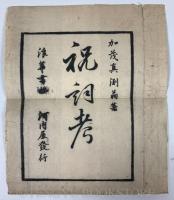 加茂真渕翁著
祝詞考
浪華書舗
河内屋發行